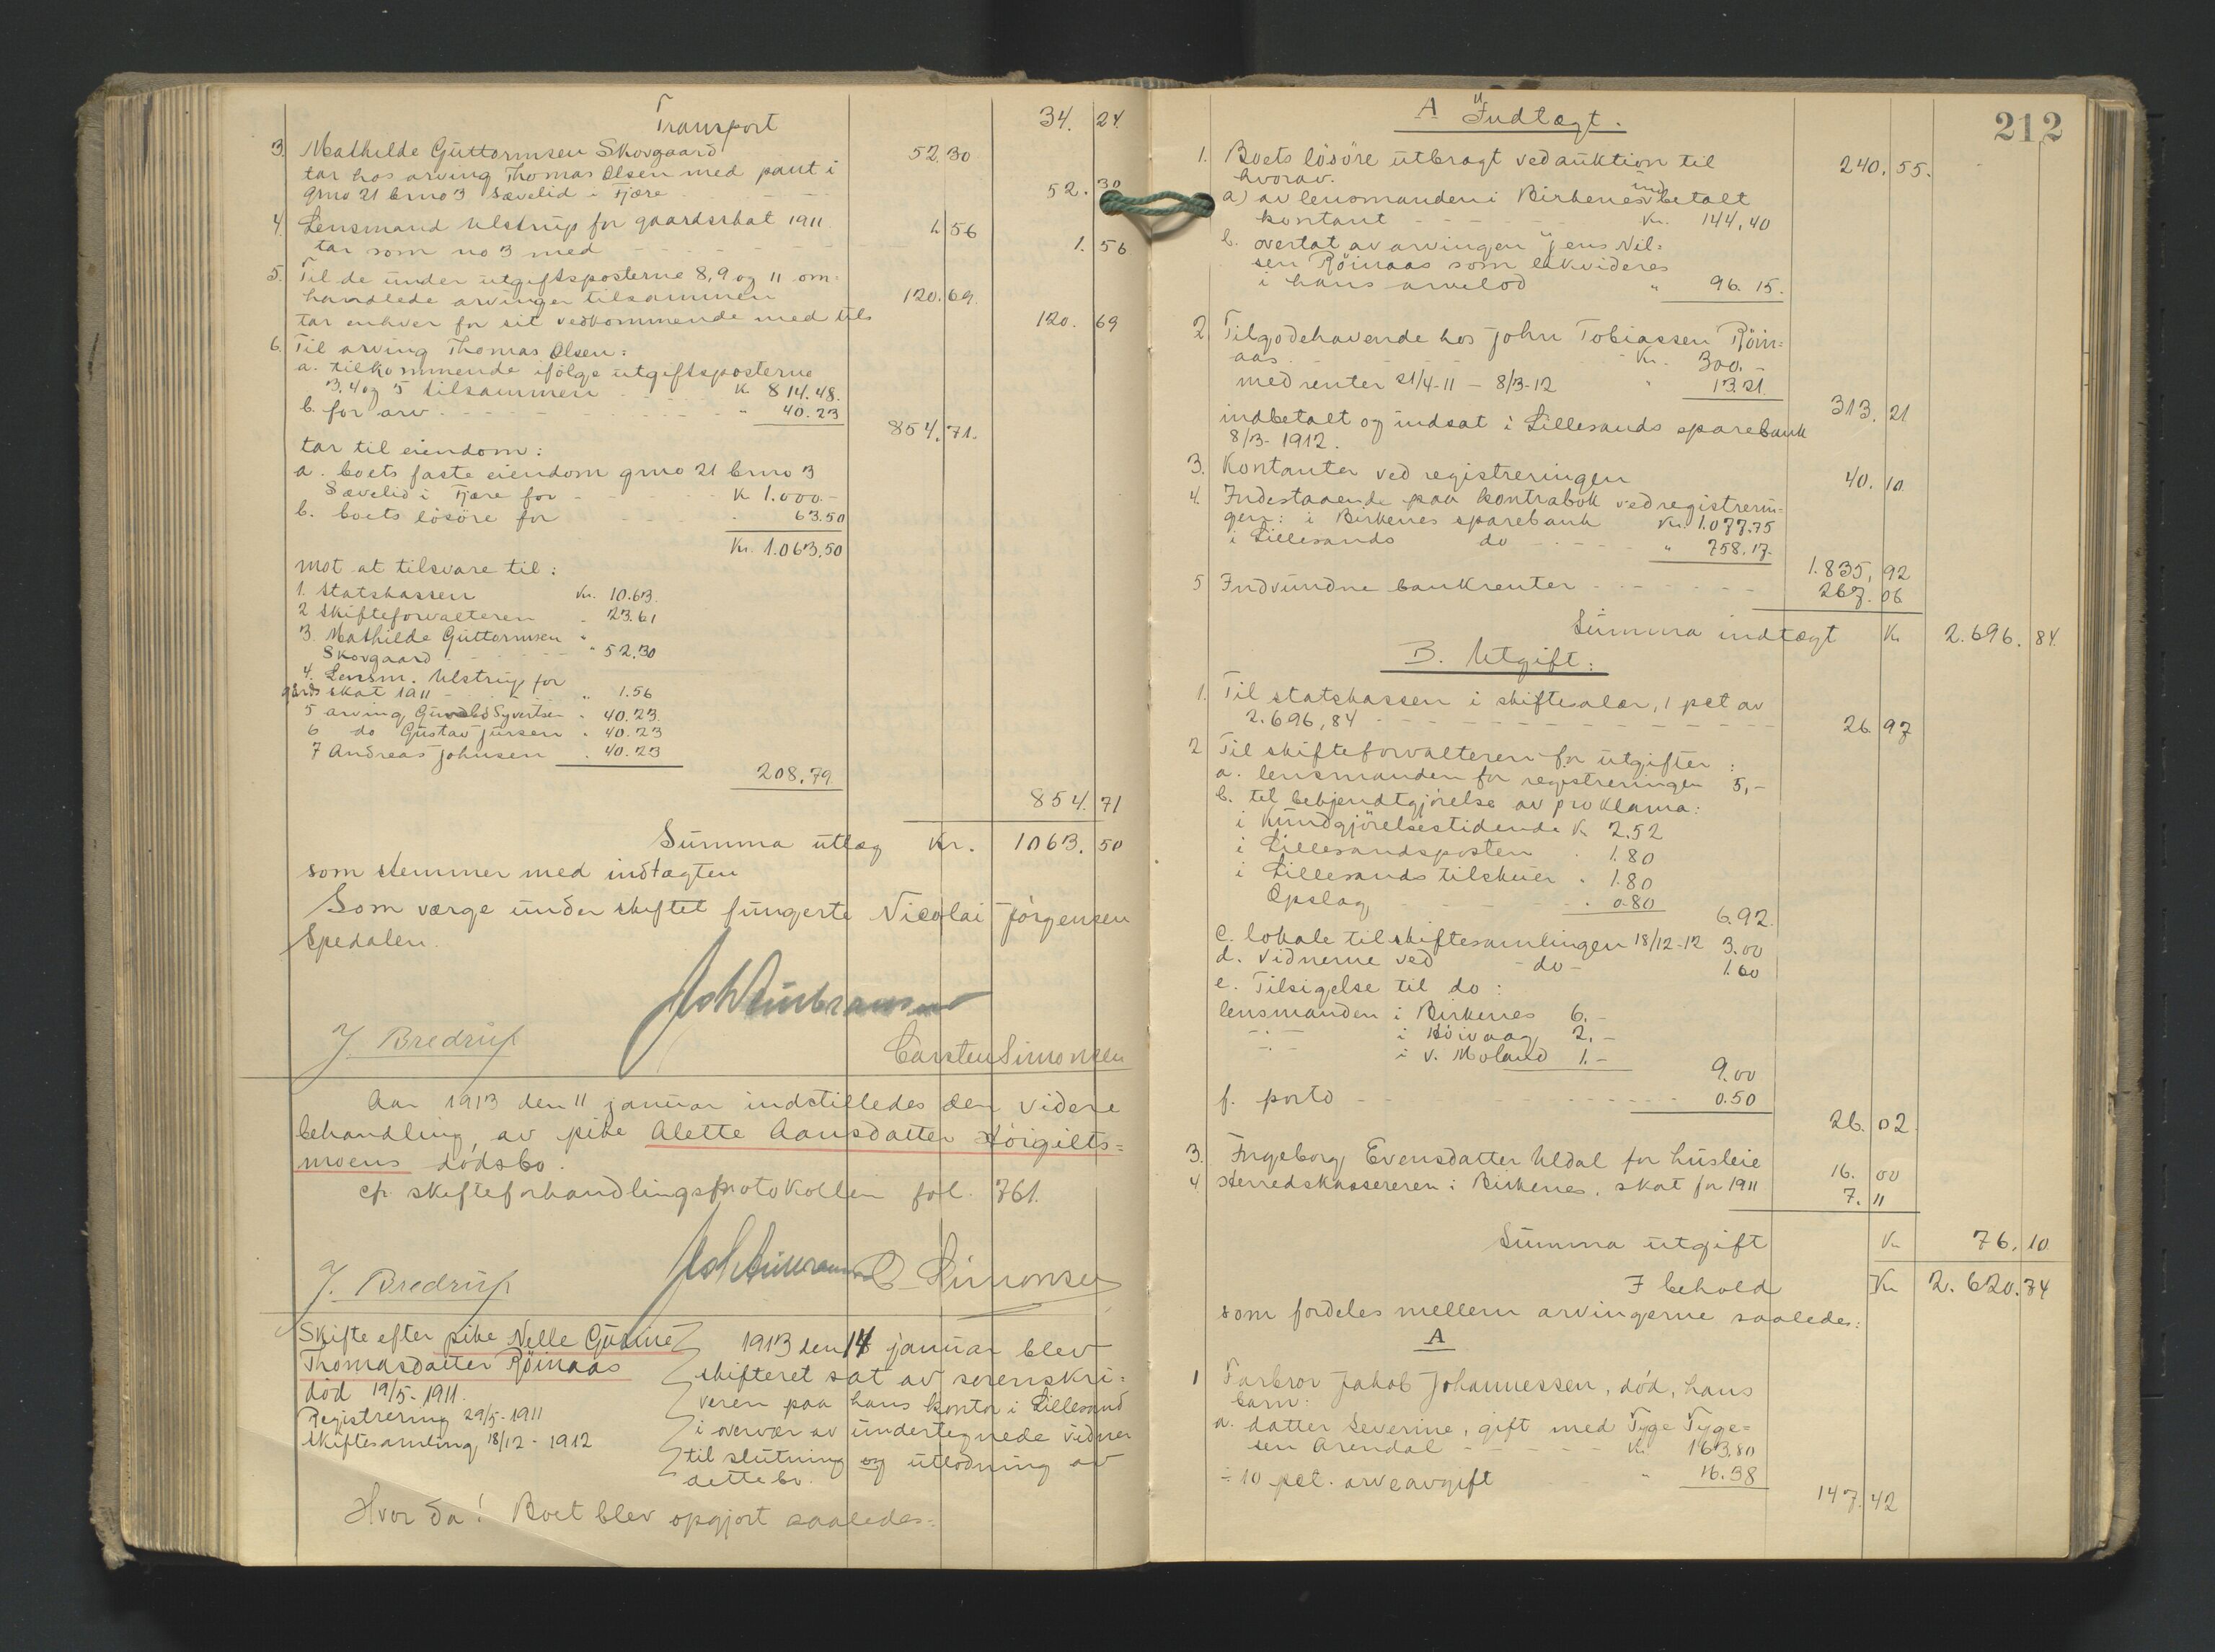 Transport 34. 24.
3. Mathilde Guttormsen Skovgaard 52.30
tar hos arving Thomas Olsen med pant i
gno 21 bno 3 Sævelid i Fjære - - - 52. 30
4. Lensmand Ulstrup for gaardsskat 1911. 1.56
tar som no 3 med - - - - - - 1. 56
5. Til de under utgiftsposterne 8, 9 og 11 om=
handlede arvinger tilsammen 120.69.
tar enhver for sit vedkommende med tils 120. 69
6. Til arving Thomas Olsen:
a. tilkommende ifölge utgiftsposterne
3, 4 og 5 tilsammen - - K. 814.48.
b. for arv - - - - - - - - " 40.23
854.71.
tar til eiendom:
a. boets faste eiendom gno 21 bno 3
Sævelid i Fjære for - - - - K 1.000.-
b. boets lösöre for - - - 63.50
Kr. 1.063.50
mot at tilsvare til:
1. Statskassen Kr. 10.63.
2 Skifteforvalteren " 23.61
3. Mathilde Guttormsen "
Skovgaard - - - - - " 52.30
4. Lensm. Ulstrup for
gårdsskat 1911 - - - - " 1.56
5 arving Syvertsen " 40.23.
6 do Gustav Jursen " 40.23
7 Andreas Johnsen " 40.23
208.79
854. 71
Summa utlæg Kr. 1063. 50
som stemmer med indtægten
Som værge under skiftet fungerte Nicolai Jörgensen
Spedalen.
J Bredrup
Carsten Simonsen
Aar 1913 den 11 januar indstilledes den videre
behandling av pike Alette Aansdatter Höigilts=
moens dödsbo.
cfr. skifteforhandlingsprotokollen fol. 761.
J. Bredrup
C Simonsen
Skifte efter pike Nelle Gurine
Thomasdatter Röinaas
död 19/5-1911.
Registrering 29/5-1911
Skiftesamling 18/12-1912
1913 den 14 januar blev
skifteret sat av sorenskri=
veren paa hans kontor i Lillesand
i overvær av undertegnede vidner
til slutning og utlodning av
dette bo.
Hvor da! Boet blev opgjort saaledes:
212
A Indtægt.
1. Boets lösöre utbragt ved auktion til 240. 55.
hvorav.
a) av lensmanden i Birkenes indbetalt
kontant - - - - - - Kr. 144,40
b. overtat av arvingen Jens Nil=
sen Röinaas som likvideres
i hans arvelod " 96. 15.
2. Tilgodehavende hos John Tobiassen Röin=
aas. - - - - - - Kr. 300.-
med renter 21/4-11 - 8/3-12 " 13.21.
313. 21
indbetalt og indsat i Lillesands sparebank
8/3-1912.
3. Kontanter ved registreringen 40. 10
4. Indestaaende paa kontrabok ved registrerin=
gen: i Birkenes sparebank Kr. 1.077.75
i Lillesands do - - - - " 758.17.
1.835, 92
5 Indvundne bankrenter - - - - - - 267. 06
Summa indtægt Kr 2.696. 84.
B. Utgift:
1. Til statskassen i skiftesalær, 1 pct av
2.696,84 - - - - - - - - - - - - 26. 97
2 Til skifteforvalteren for utgifter:
a. lensmanden for registreringen 5,-
b. til bekjendtgjörelse av proklama:
i Kundgjörelsestidende K 2.52
i Lillesandsposten " 1.80
i Lillesands tilskuer " 1.80
Opslag - - - - - " 0.80
6.92.
c. lokale til skiftesamlingen 18/12-12 3.00
d. vidnerne ved -do- 1.60
e. Tilsigelse til do:
lensmanden i Birkenes 6.-
-"- i Höivaag 2.-
-"- i v. Moland 1.-
9.00
f. porto - - - - - - - - - - 0.50
26. 02.
3. Ingeborg Evensdatter Uldal for husleie 16. 00
4 Herredskassereren i Birkenes, skat for 1911 7. 11
Summa utgift Kr 76. 10
I behold Kr 2.620.74
som fordeles mellem arvingerne saaledes:
A
1 Farbror Jakob Johannessen, död, hans
barn:
a. datter Severine, gift med Tyge Tyge=
sen Arendal - - - - - Kr. 163.80
÷ 10 pct. arveavgift - - " 16.38
147. 42